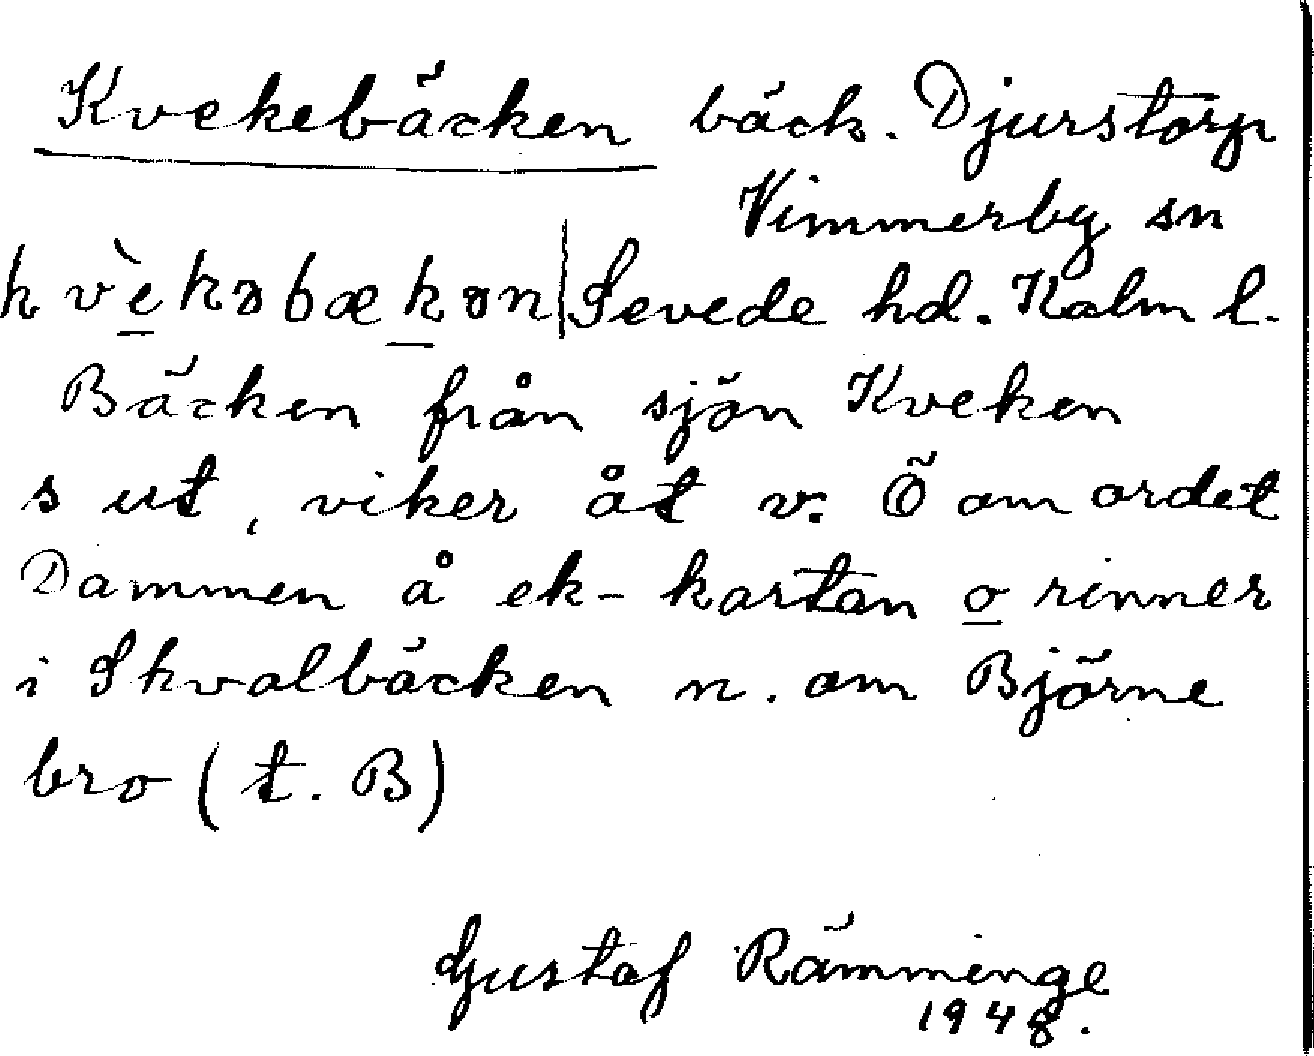 Kvekebäcken bäck. Djurstorp
Vimmerby sn
kvèkəbækən | Sevede hd. Kalm l.
Bäcken från sjön Kveken
s ut, viker åt v. Ö om ordet
Dammen å ek-kartan o rinner
i Skvalbäcken n. om Björne
bro (t. B)
Gustaf Rämminge
1948.